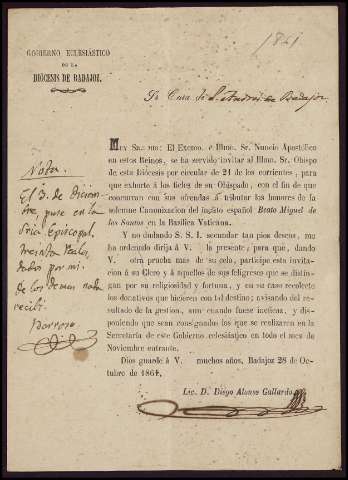 1861
GOBIERNO ECLESIÁSTICO
DE LA
DIÓCESIS DE BADAJOZ.
Sr Cura de S. Andrés de Badajoz.
MUY SR. MIO: El Excmo. é Illmo. Sr. Nuncio Apostólico
en estos Reinos, se ha servido invitar al Illmo. Sr. Obispo
de esta Diócesis por circular de 21 de los corrientes, para
que exhorte á los fieles de su Obispado, con el fin de que
concurran con sus ofrendas á tributar los honores de la
solemne Canonizacion del ínclito español Beato Miguel de
los Santos en la Basílica Vaticana.
Y no dudando S. S. I. secundar tan pios deseos, me
ha ordenado dirija á V. la presente; para que, dando
V. otra prueba mas de su celo, participe esta invitacion
á su Clero y á aquellos de sus feligreses que se distingan
por su religiosidad y fortuna, y en su caso recolecte
los donativos que hicieren con tal destino; avisando del resultado
de la gestion, aun cuando fuese ineficaz, y disponiendo
que sean consignados los que se realizaren en la
Secretaría de este Gobierno eclesiástico en todo el mes de
Noviembre entrante.
Dios guarde á V. muchos años. Badajoz 28 de Octubre
de 1861.
Lic. D. Diego Alonso Gallardo
Nota.
El 3 de Diciembre,
puse en la
Sria Episcopal
treinta reales
dados por mi.
de los demas nada
recibí
Borrero